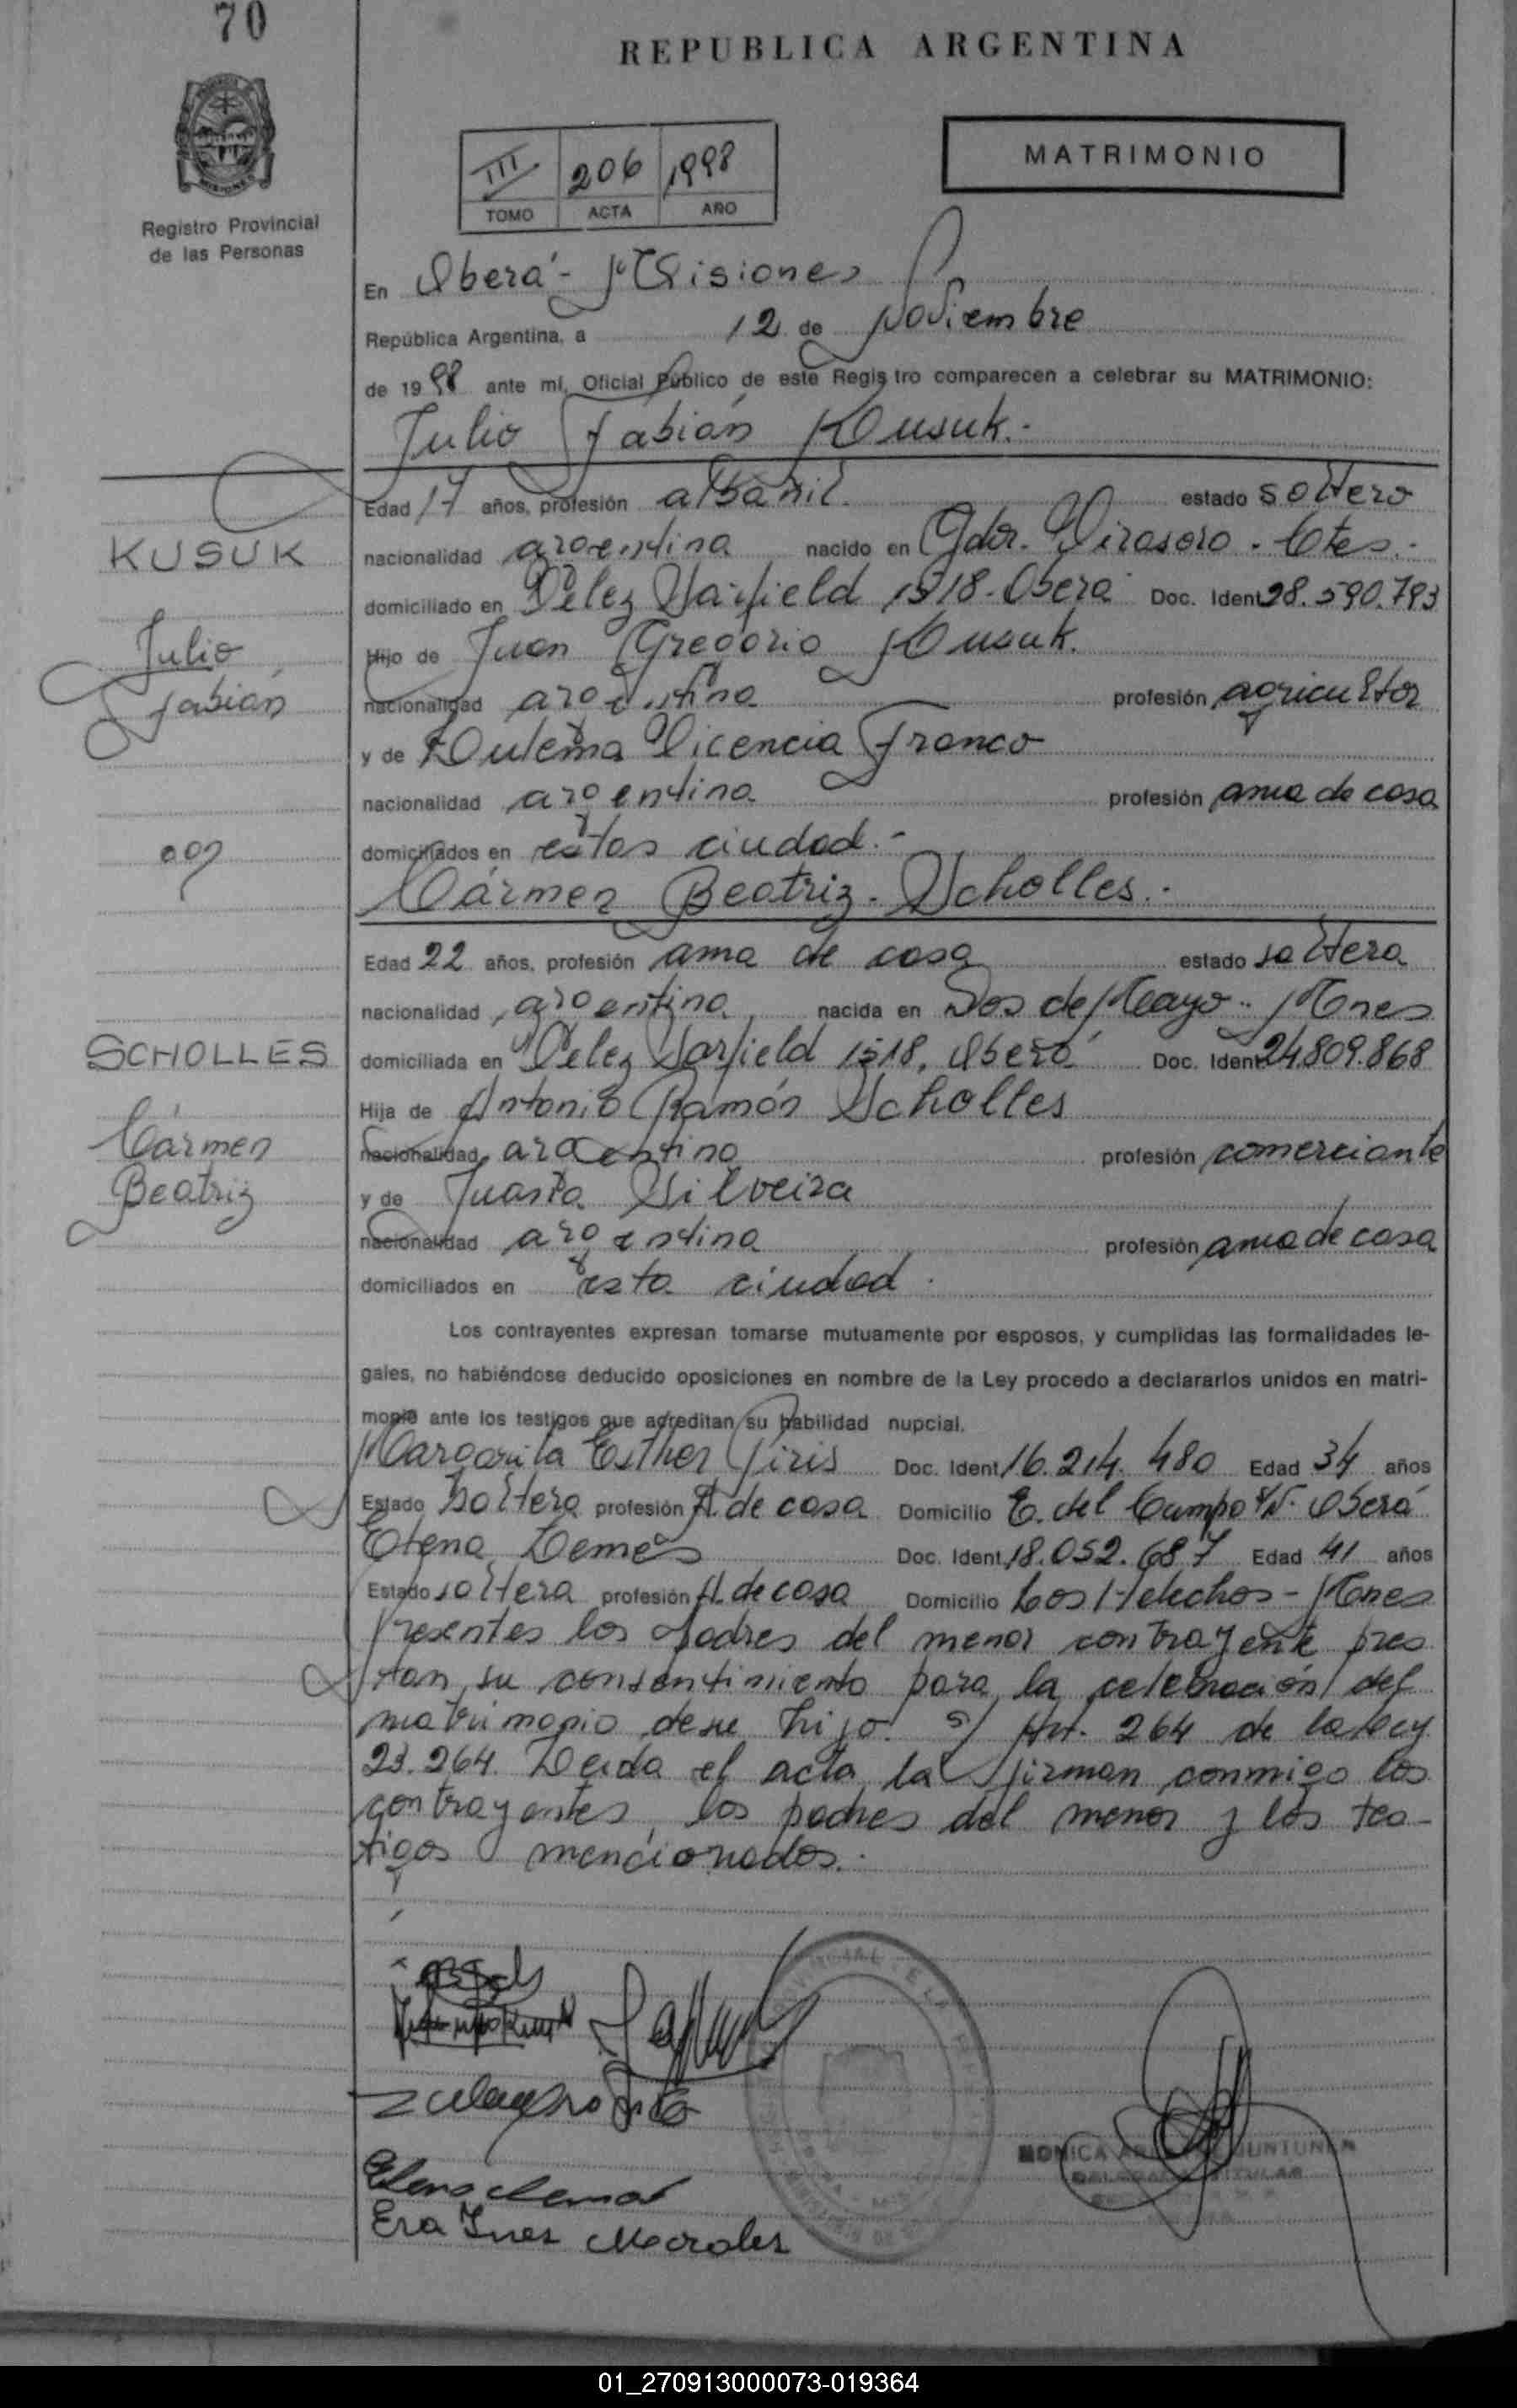 70
REPUBLICA ARGENTINA
III 206 1998
TOMO ACTA AÑO
MATRIMONIO
Registro Provincial
de las Personas
En Oberá - Misiones
República Argentina, a 12 de Noviembre
de 1998 ante mí, Oficial Público de este Registro comparecen a celebrar su MATRIMONIO:
Julio Fabián Kusuk.-
Edad 17 años, profesión albañil. estado soltero
KUSUK
nacionalidad argentina nacido en Gdor. Virasoro - Ctes.-
domiciliado en Vélez Sarfield 1518 - Oberá Doc. Ident. 28.590.793
Julio
Hijo de Juan Gregorio Kusuk.
Fabián
nacionalidad argentina profesión agricultor
y de Vicencia Franco
nacionalidad argentina profesión ama de casa
con
domiciliados en esta ciudad.-
Cármen Beatriz Scholles.-
Edad 22 años, profesión ama de casa estado soltera
nacionalidad argentina nacida en Dos de Mayo - Mnes
SCHOLLES
domiciliada en Vélez Sarfield 1518, Oberá Doc. Ident. 24.809.868
Hija de Antonio Ramón Scholles
Cármen
nacionalidad argentino profesión comerciante
Beatriz
y de Juasta Silveira
nacionalidad argentina profesión ama de casa
domiciliados en esta ciudad.
Los contrayentes expresan tomarse mutuamente por esposos, y cumplidas las formalidades le-
gales, no habiéndose deducido oposiciones en nombre de la Ley procedo a declararlos unidos en matri-
monio ante los testigos que acreditan su habilidad nupcial.
Margarita Esther Doc. Ident. 16.214.480 Edad 34 años
Estado Soltera profesión A. de casa Domicilio C. del Campo S/N. Oberá
Elena Doc. Ident. 18.052.687 Edad 41 años
Estado soltera profesión A. de casa Domicilio Los Helechos - Mnes
Presentes los padres del menor contrayente pres
tan su consentimiento para la celebración del
matrimonio de su hijo. s/ Art. 264 de la ley
23.264. Leida el acta, la firman conmigo los
contrayentes, los padres del menor y los tes-
tigos mencionados.-
Eva Ines Morales
MONICA
01_270913000073-019364